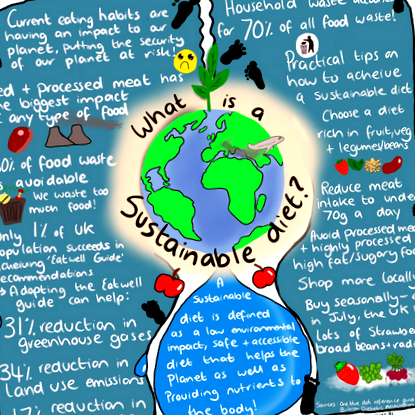 Current eating habits are
having an impact to our
planet, putting the security
of our planet at risk!
ed + processed meat has
e biggest impact
f any type of food
0% of food waste
s avoidable
we waste too
much food!
nly 1% of UK
opulation succeeds in
cheiving 'Eatwell Guide'
ecommendations
→ Adopting the Eatwell
guide can help:
31% reduction in
greenhouse gases
34% reduction in
land use emissions
17% reduction
What is a
Sustainable diet?
A
Sustainable
diet is defined
as a low environmental
impact, safe + accessible
diet that helps the
Planet as well as
Providing nutrients to
the body!
Household waste
for 70% of all food waste!
Practical tips on
how to acheive
a Sustainable diet
Choose a diet
rich in fruit, veg
+ legumes/beans
Reduce meat
intake to under
70g a day
Avoid processed mea
+ highly processed
high fat/sugary foo
Shop more locally
Buy seasonally -
in July, the UK
lots of Strawb
broad beans + rad